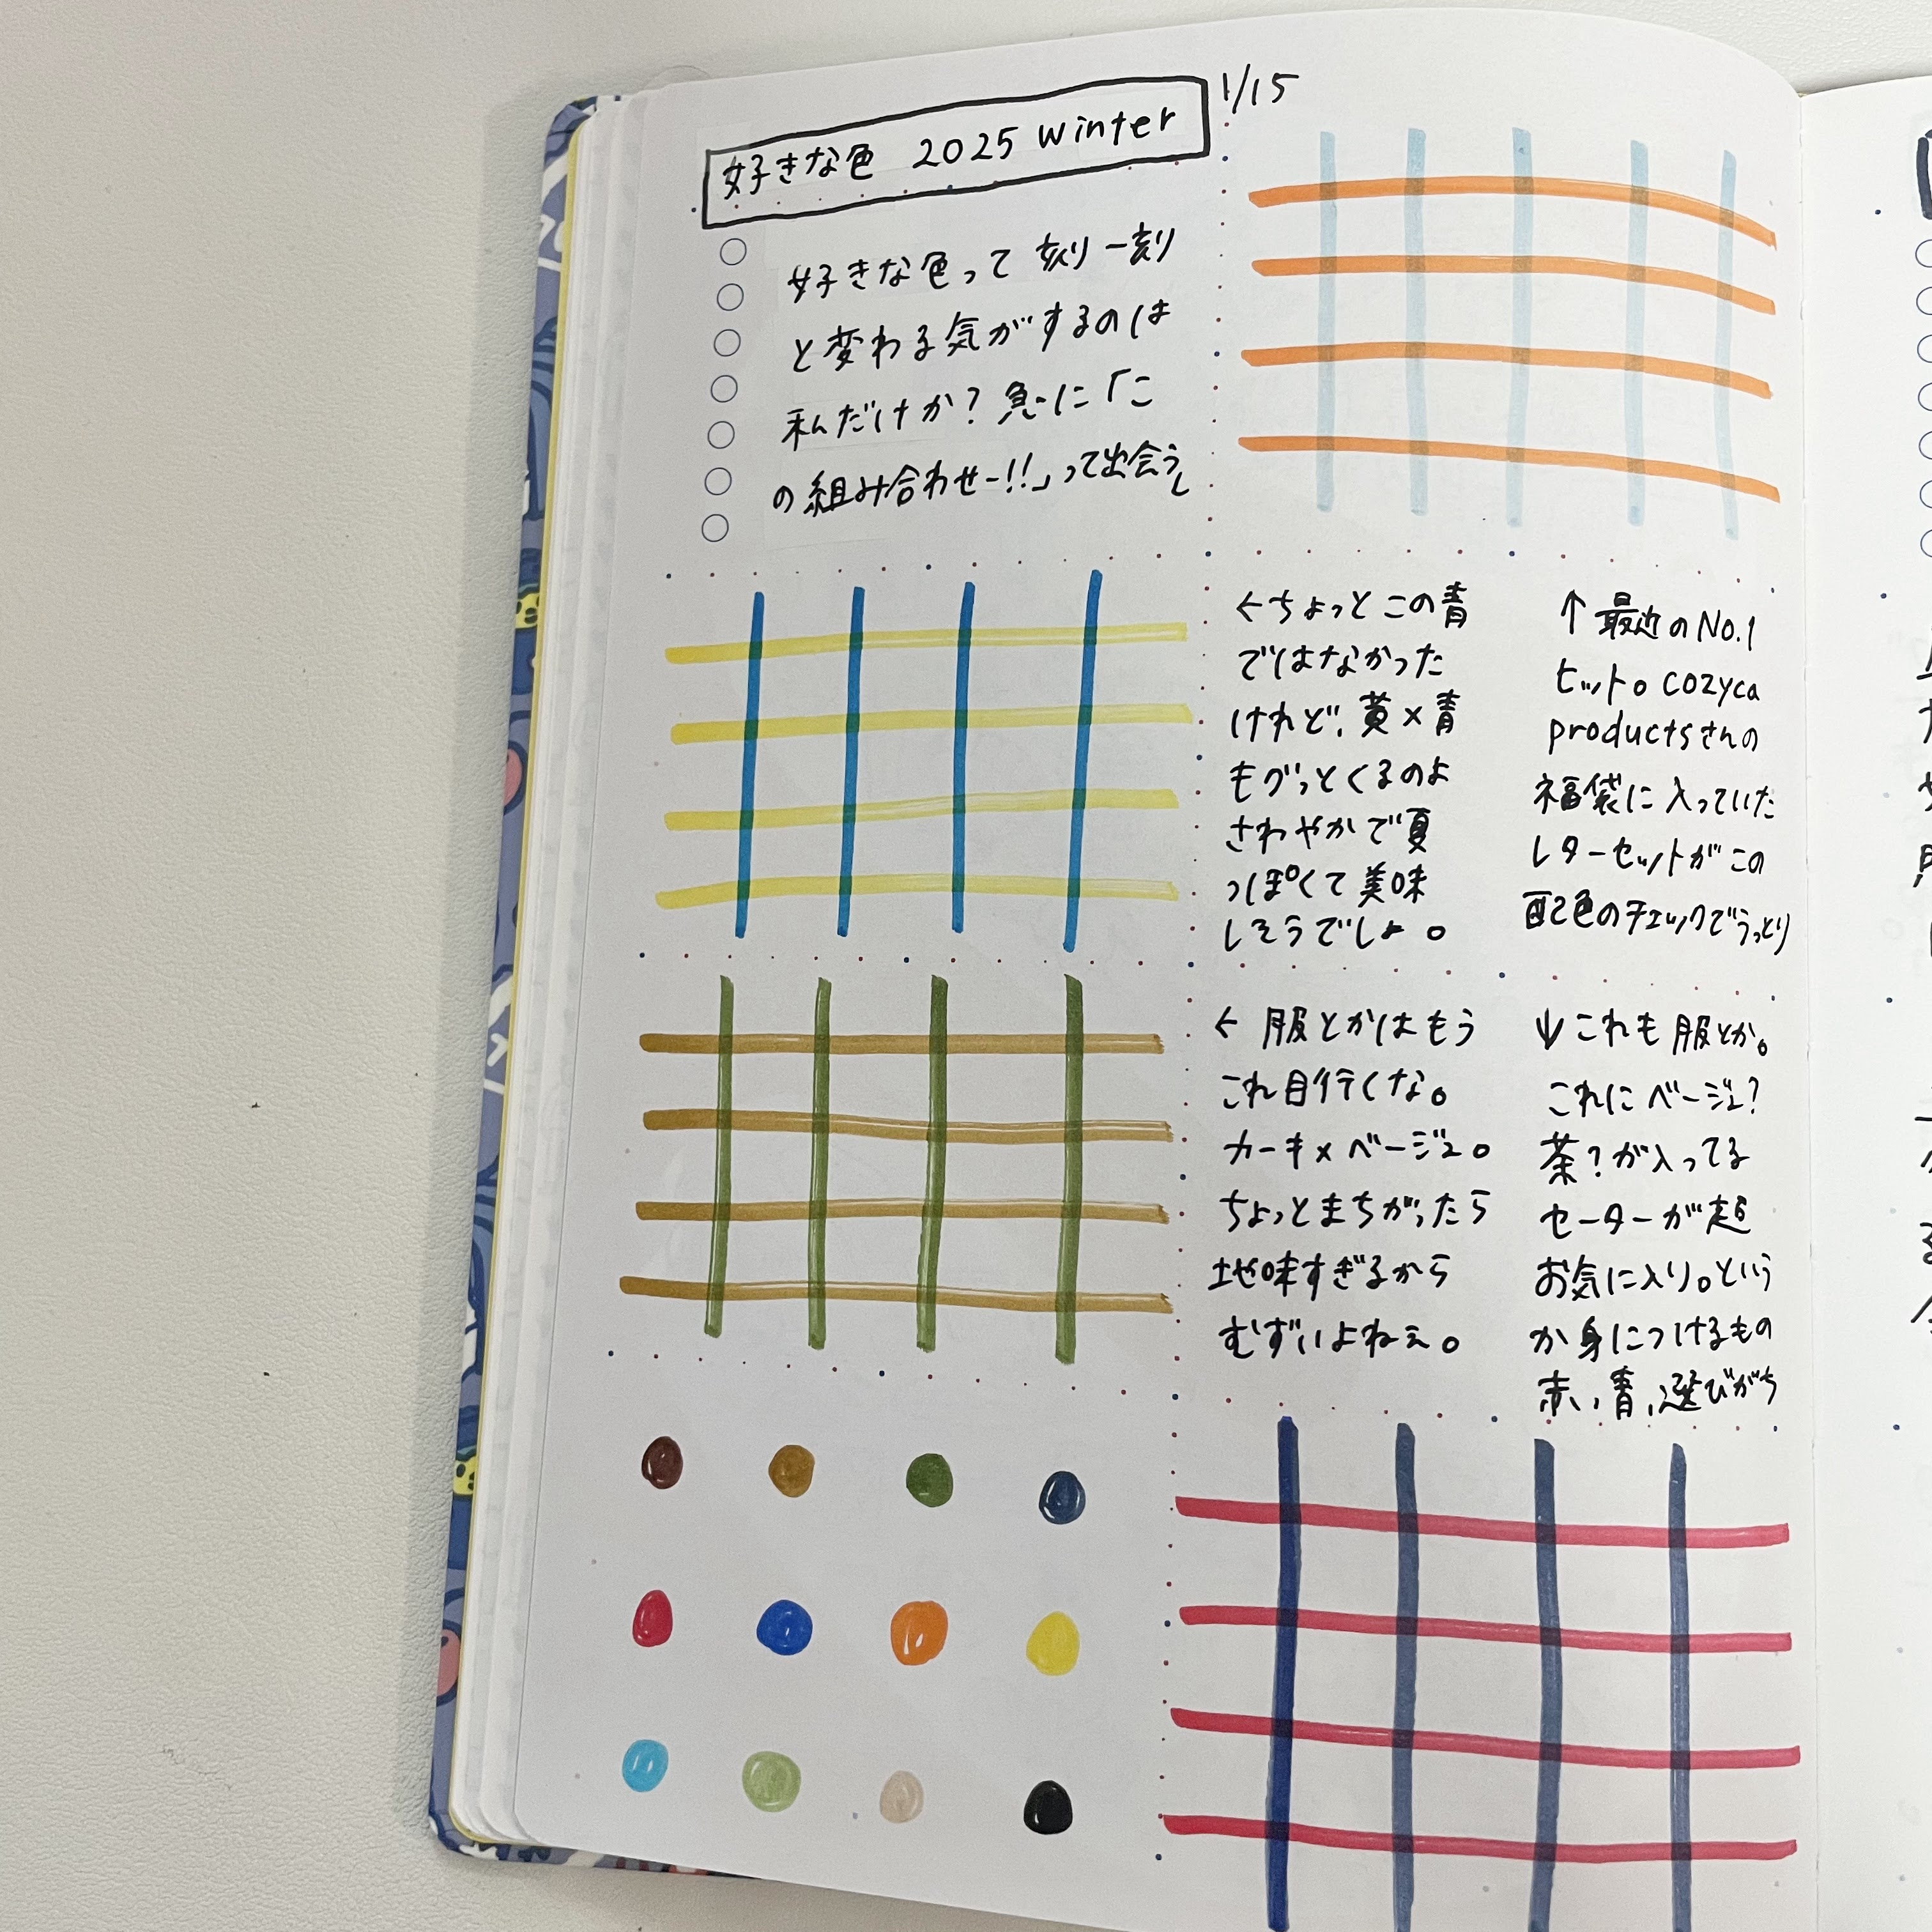 好きな色 2025 winter
1/15
好きな色って刻一刻
と変わる気がするのは
私だけか?急に「こ
の組み合わせー!!」って出会う
←ちょっとこの青
ではなかった
けれど、黄×青
もグッとくるのよ
さわやかで夏
っぽくて美味
しそうでしょ。
↑最近のNo.1
ヒット。cozyca
productsさんの
福袋に入っていた
レターセットがこの
配色のチェックでうっとり
←服とかはもう
これ目行くな。
カーキ×ベージュ。
ちょっとまちがったら
地味すぎるから
むずいよねぇ。
↓これも服とか。
これにベージュ?
茶?が入ってる
セーターが超
お気に入り。という
か身につけるもの
赤、青、選びがち